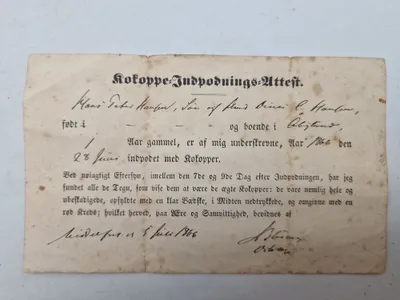 Kokoppe-Indpodnings-Attest.
Hans Peter Hansen, Søn af C. Hansen,
født i — — — — og boende i
1 Aar gammel, er af mig underskrevne, Aar 1866 den
28 Juni indpodet med Kokopper.
Ved nøiagtig Eftersyn, imellem den 7de og 9de Dag efter Indpodningen, har jeg
fundet alle de Tegn, som vise dem at være de ægte Kokopper: de vare nemlig hele og
ubeskadigede, opfyldte med en klar Vædske, i Midten nedtrykkede, og omgivne med en
rød Kreds; hvilket herved, paa Ære og Samvittighed, bevidnes af
Middelfart d 5 Juli 1866